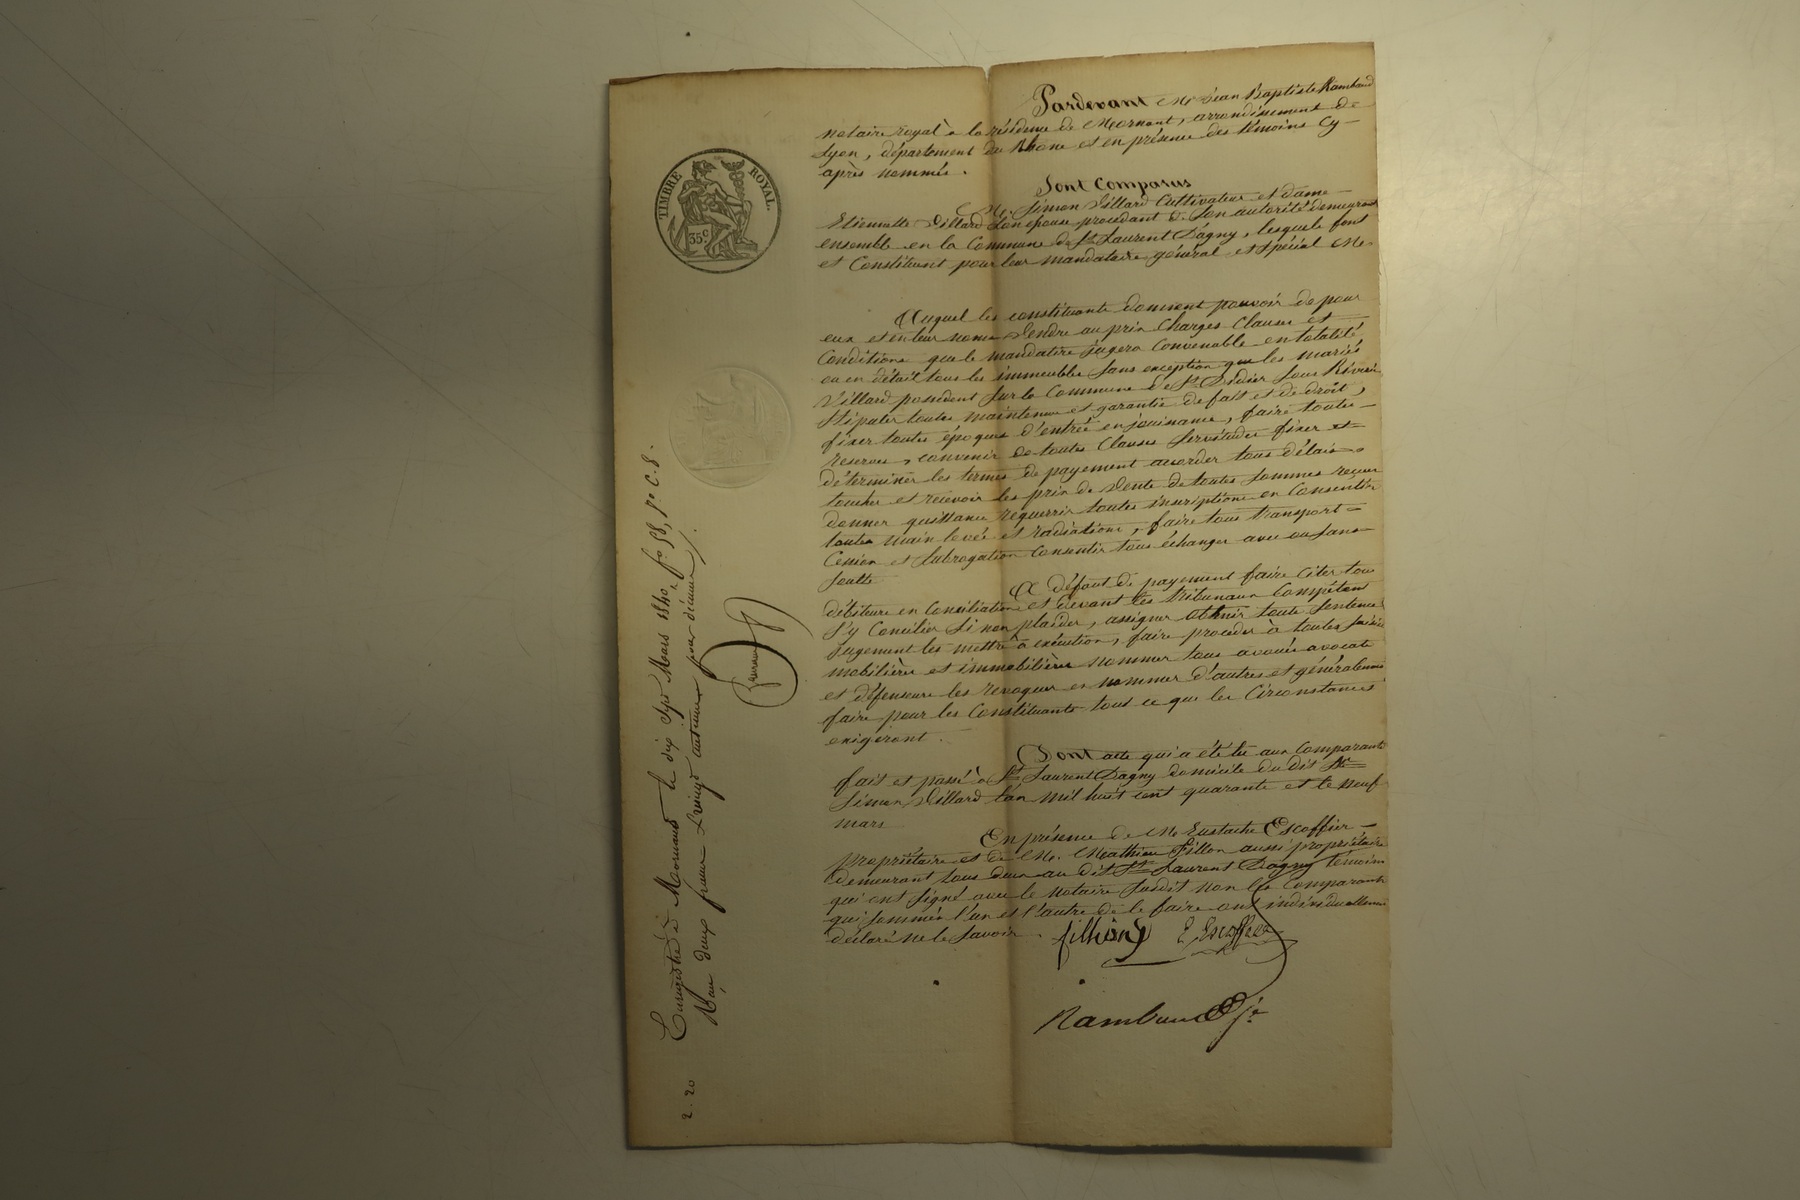 TIMBRE ROYAL.
35 c.
Pardevant Me Jean Baptiste Rambaud
notaire royal à la résidence de Mornant, arrondissement de
Lyon, département du Rhône et en présence des témoins Cy-
après nommés.
Sont Comparus
Mr. Simon Villard Cultivateur et dame
Etiennette Villard Son épouse procédant de Son autorité demeurant
ensemble en la Commune de St. Laurent Dagny, lesquels font
et Constituent pour leur mandataire général et spécial Mr.
Auquel les constituants donnent pouvoir de pour
eux et en leur noms Vendre au prix Charges Clauses et
Conditions que le mandataire jugera Convenable en totalité
ou en détail tous les immeubles Sans exception que les mariés
Villard possèdent Sur la Commune de St. Didier Sous Riverie
Stipuler toutes maintenues et garantie de fait et de droit,
fixer toutes époques d'entrée en jouissance, faire toutes
reserves, convenir de toutes Clauses Servitudes fixer et
déterminer les termes de payement accorder tous délais
toucher et recevoir les prix de Vente de toutes sommes reçues
donner quittance requerrir toutes inscriptions en Consentir
toutes main levée et radiations, faire tous transport
Cession et Subrogation Consentir tous échanges avec ou Sans
Soulte
A défaut de payement faire Citer tous
débiteurs en Conciliation et devant les tribunaux Compétents
S'y Concilier Si non plaider, assigner obtenir toute Sentence
jugement les mettre à exécution, faire procéder à toutes Saisies
mobilières et immobilières nommer tous avoués avocats
et défenseurs les revoquer en nommer d'autres et généralement
faire pour les Constituants tout ce que les Circonstances
exigeront.
Dont acte qui a été lu aux Comparants
fait et passé à St. Laurent Dagny domicile du dit Mr
Simon Villard l'an mil huit cent quarante et le neuf
mars
En présence de Mr Eustache Escoffier
propriétaire et de Mr. Mathieu Fillon aussi propriétaire
demeurant tous deux au dit St. Laurent Dagny témoins
qui ont signé avec le notaire Susdit non les Comparants
qui Sommés l'un et l'autre de le faire ont individuellement
déclaré ne le Savoir.
fillion E. Escoffier
Rambaud
Enregistré à Mornant le dix Sept Mars 1840, fo 58, Vo C. 8.
Reçu deux francs vingt centimes pour décime
2.20